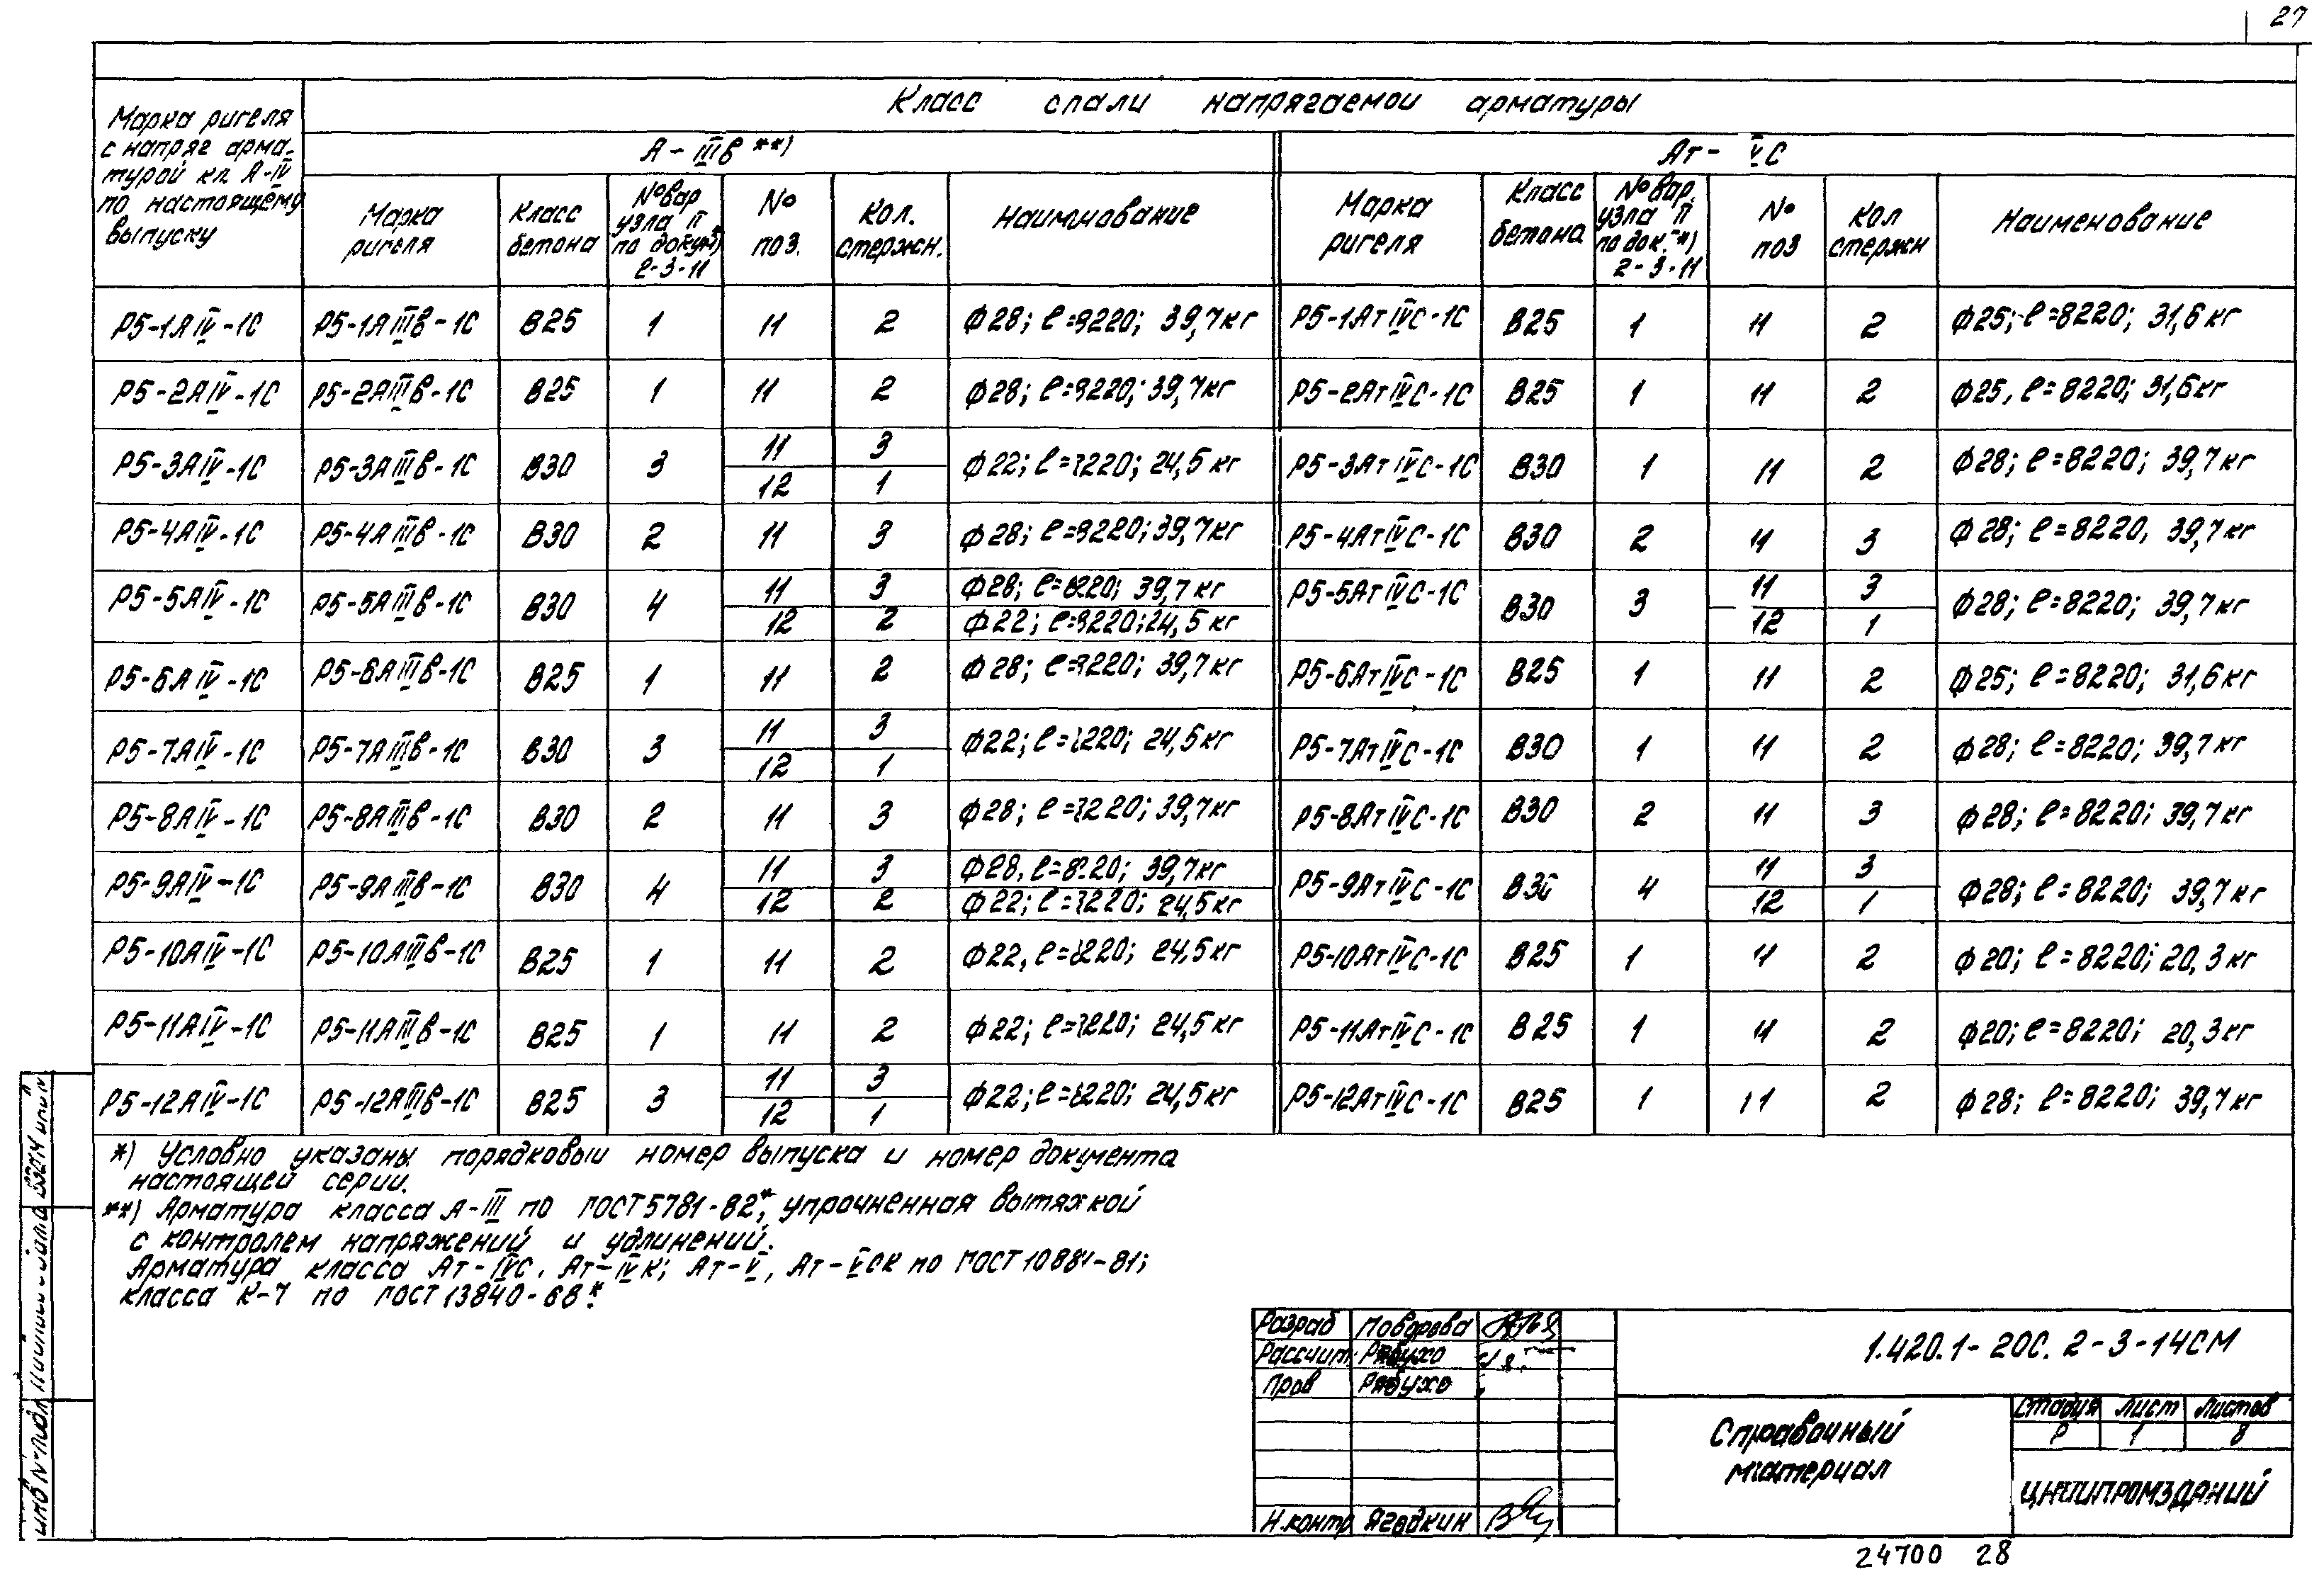 27
Класс стали напрягаемой арматуры
Марка ригеля
с напряг арма-
турой кл. А-IV
по настоящему
выпуску
А-IIIв **)
Ат-VС
Марка ригеля
Класс бетона
№ вар узла II по докум. *) 2-3-11
№ поз.
Кол. стержн.
Наименование
Марка ригеля
Класс бетона
№ вар. узла II по док. *) 2-3-11
№ поз
Кол стержн
Наименование
Р5-1АIV-1С Р5-1АIIIв-1С В25 1 11 2 ф28; ℓ=8220; 39,7кг Р5-1АтIVС-1С В25 1 11 2 ф25; ℓ=8220; 31,6кг
Р5-2АIV-1С Р5-2АIIIв-1С В25 1 11 2 ф28; ℓ=8220; 39,7кг Р5-2АтIVС-1С В25 1 11 2 ф25, ℓ=8220; 31,6кг
Р5-3АIV-1С Р5-3АIIIв-1С В30 3 11 3 ф22; ℓ=8220; 24,5кг Р5-3АтIVС-1С В30 1 11 2 ф28; ℓ=8220; 39,7кг
12 1
Р5-4АIV-1С Р5-4АIIIв-1С В30 2 11 3 ф28; ℓ=8220; 39,7кг Р5-4АтIVС-1С В30 2 11 3 ф28; ℓ=8220, 39,7кг
Р5-5АIV-1С Р5-5АIIIв-1С В30 4 11 3 ф28; ℓ=8220; 39,7кг Р5-5АтIVС-1С В30 3 11 3 ф28; ℓ=8220; 39,7кг
12 2 ф22; ℓ=8220; 24,5кг 12 1
Р5-6АIV-1С Р5-6АIIIв-1С В25 1 11 2 ф28; ℓ=8220; 39,7кг Р5-6АтIVС-1С В25 1 11 2 ф25; ℓ=8220; 31,6кг
Р5-7АIV-1С Р5-7АIIIв-1С В30 3 11 3 ф22; ℓ=8220; 24,5кг Р5-7АтIVС-1С В30 1 11 2 ф28; ℓ=8220; 39,7кг
12 1
Р5-8АIV-1С Р5-8АIIIв-1С В30 2 11 3 ф28; ℓ=8220; 39,7кг Р5-8АтIVС-1С В30 2 11 3 ф28; ℓ=8220; 39,7кг
Р5-9АIV-1С Р5-9АIIIв-1С В30 4 11 3 ф28, ℓ=8220; 39,7кг Р5-9АтIVС-1С В30 4 11 3 ф28; ℓ=8220; 39,7кг
12 2 ф22; ℓ=8220; 24,5кг 12 1
Р5-10АIV-1С Р5-10АIIIв-1С В25 1 11 2 ф22, ℓ=8220; 24,5кг Р5-10АтIVС-1С В25 1 11 2 ф20; ℓ=8220; 20,3кг
Р5-11АIV-1С Р5-11АIIIв-1С В25 1 11 2 ф22; ℓ=8220; 24,5кг Р5-11АтIVС-1С В25 1 11 2 ф20; ℓ=8220; 20,3кг
Р5-12АIV-1С Р5-12АIIIв-1С В25 3 11 3 ф22; ℓ=8220; 24,5кг Р5-12АтIVС-1С В25 1 11 2 ф28; ℓ=8220; 39,7кг
12 1
*) Условно указаны порядковый номер выпуска и номер документа
настоящей серии.
**) Арматура класса А-III по ГОСТ 5781-82*, упрочненная вытяжкой
с контролем напряжений и удлинений.
Арматура класса Ат-IVС, Ат-IVК; Ат-V, Ат-VСК по ГОСТ 10884-81;
класса К-7 по ГОСТ 13840-68*.
Разраб
Рассчит. Рябухо
Пров Рябухо
Н.контр Ягодкин
1.420.1-20С. 2-3-14СМ
Справочный
материал
Стадия Лист Листов
Р 1 8
ЦНИИПРОМЗДАНИЙ
24700 28